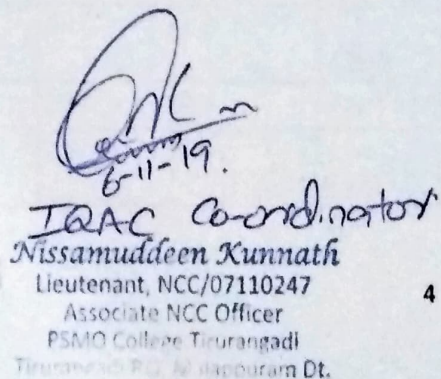 6-11-19.
IQAC Co-ordinator
Nissamuddeen Kunnath
Lieutenant, NCC/07110247
4
Associate NCC Officer
PSMO College Tirurangadi
Tirurangadi P.O. Malappuram Dt.